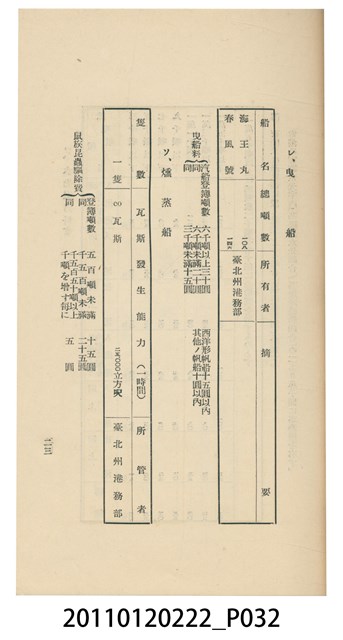 レ、曳船
船名 總噸數 所有者 摘要
海王丸 臺北州港務部
春風號
曳船料
汽船登簿噸數 六千噸以上三十圓 西洋形帆船十五圓以內
同 六千噸未滿二十圓 其他ノ帆船十圓以內
同 三千噸未滿十五圓
ソ、燻蒸船
隻數 瓦斯發生能力(一時間) 所管者
一隻 立方呎 臺北州港務部
鼠族昆蟲驅除費
登簿噸數 五百噸未滿 十五圓
同 千五百噸未滿 二十五圓
同 千五百噸以上
千噸を增す每に 五圓
20110120222_P032